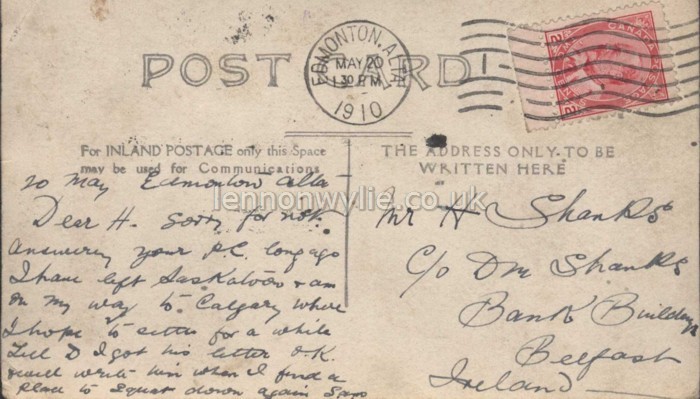 POST CARD
EDMONTON. ALTA
MAY 20
1 30 P M
1910
CANADA POSTAGE
2 2
For INLAND POSTAGE only this Space
may be used for Communications
THE ADDRESS ONLY TO BE
WRITTEN HERE
lennonwylie.co.uk
20 May Edmonton Alta
Dear H. Sorry for not
answering your P.C. long ago
I have left Saskatoon & am
on my way to Calgary where
I hope to settle for a while
Tell D I got his letter O.K.
& will write him when I find a
place to squat down again
Mr H Shanks
C/o Shanks
Bank Buildings
Belfast
Ireland